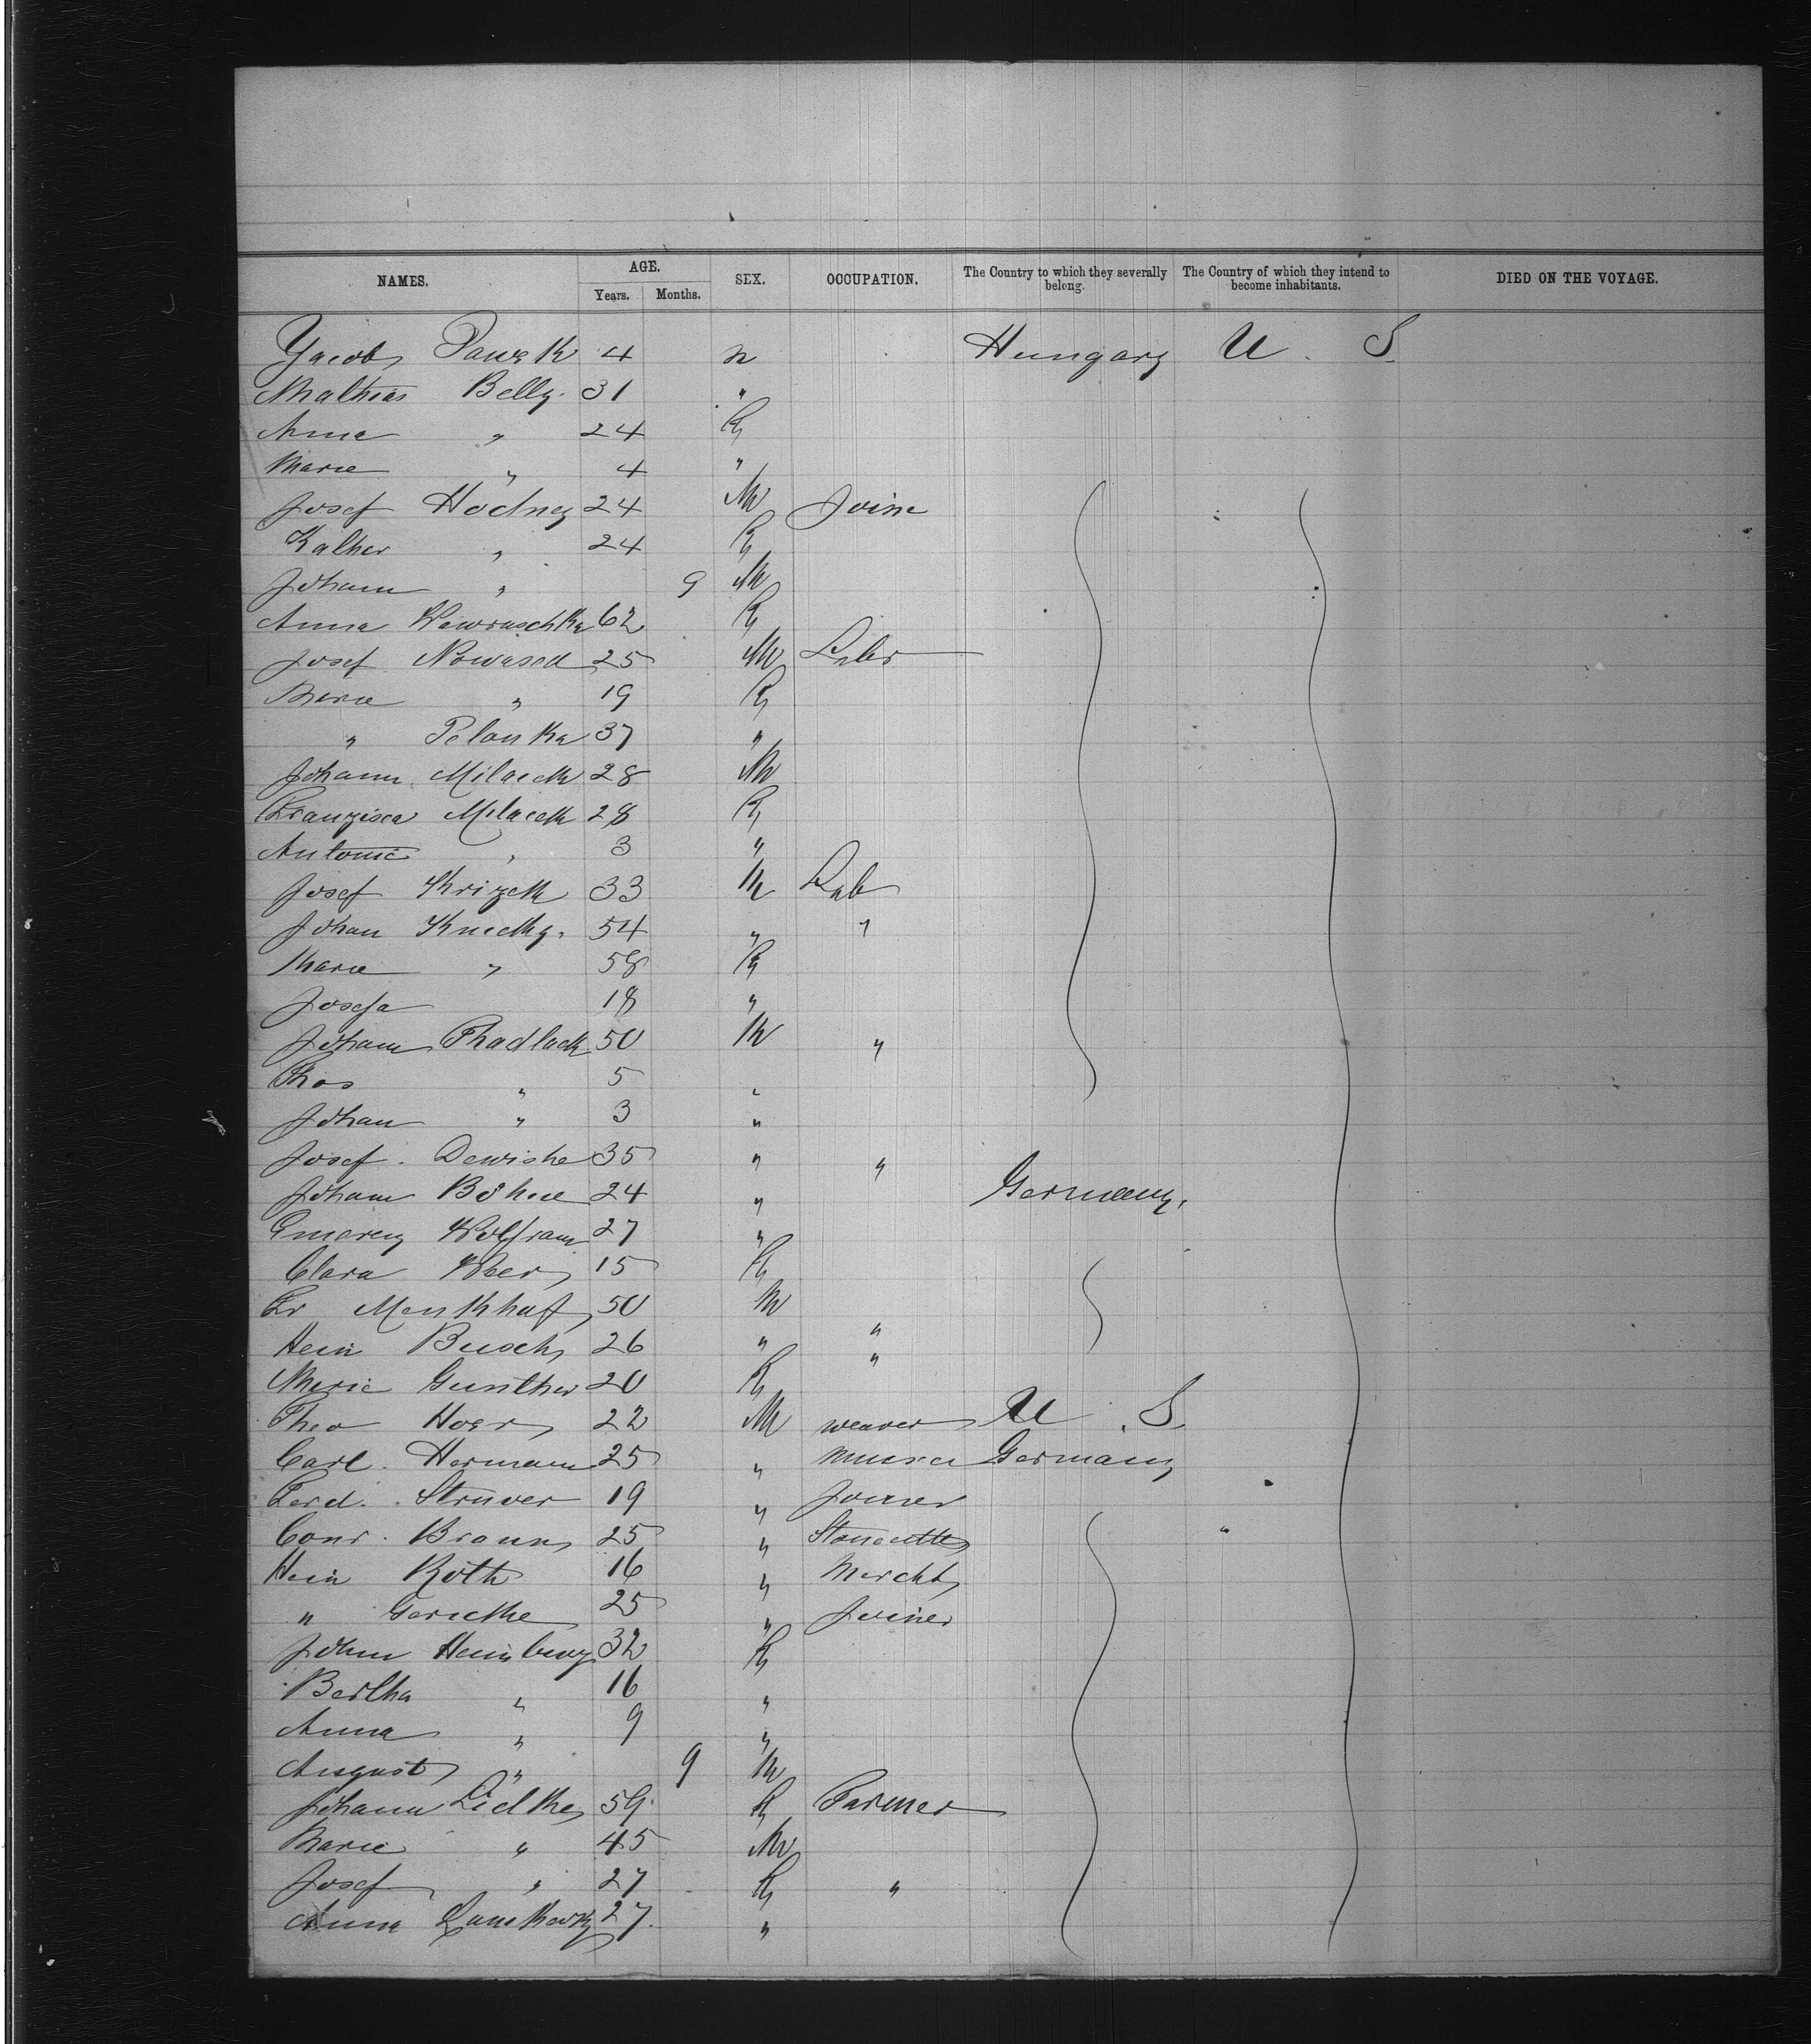 NAMES. AGE. SEX. OCCUPATION. The Country to which they severally belong. The Country of which they intend to become inhabitants. DIED ON THE VOYAGE.
Years. Months.
Yacob 4 Hungary U. S
Mathias Belly. 31 "
Anna " 24
Marie " 4 "
Josef Hodney 24 M Joine
Kather " 24
Johann " 9 M
Anna 62
Josef 25 M Labr
Marie " 19
" Pelanka 37 "
Johann Milacek 28 M
Franzisca Milacek 28
Antonie " 3 "
Josef Krizek 33 M Lab
Johan 54 " "
Marie " 58
Josefa 18 "
Johann Thadlack 50 M "
Thos " 5 "
Johan " 3 "
Josef. Dewishe 35 " "
Johann Böhne 24 " Germany.
Wolfram 27 "
Clara 15
Fr Menkhaf 50 M "
Hein Busch 26 " "
Marie Gunther 20
Theo Hoer 22 M weaver U. S
Carl. Hermann 25 " Germany
Ferd. Struver 19 " Joiner
Conr. Braun 25 " Stonecutter "
Hein Roth 16 " Mercht
" Gericke 25 " Joiner
Johnn Heinburg 32
Bertha " 16 "
Anna " 9 "
August " 9 M
Johann Lidtke 59 Farmer
Marie " 45 M
Josef " 27 "
Anna 27. "